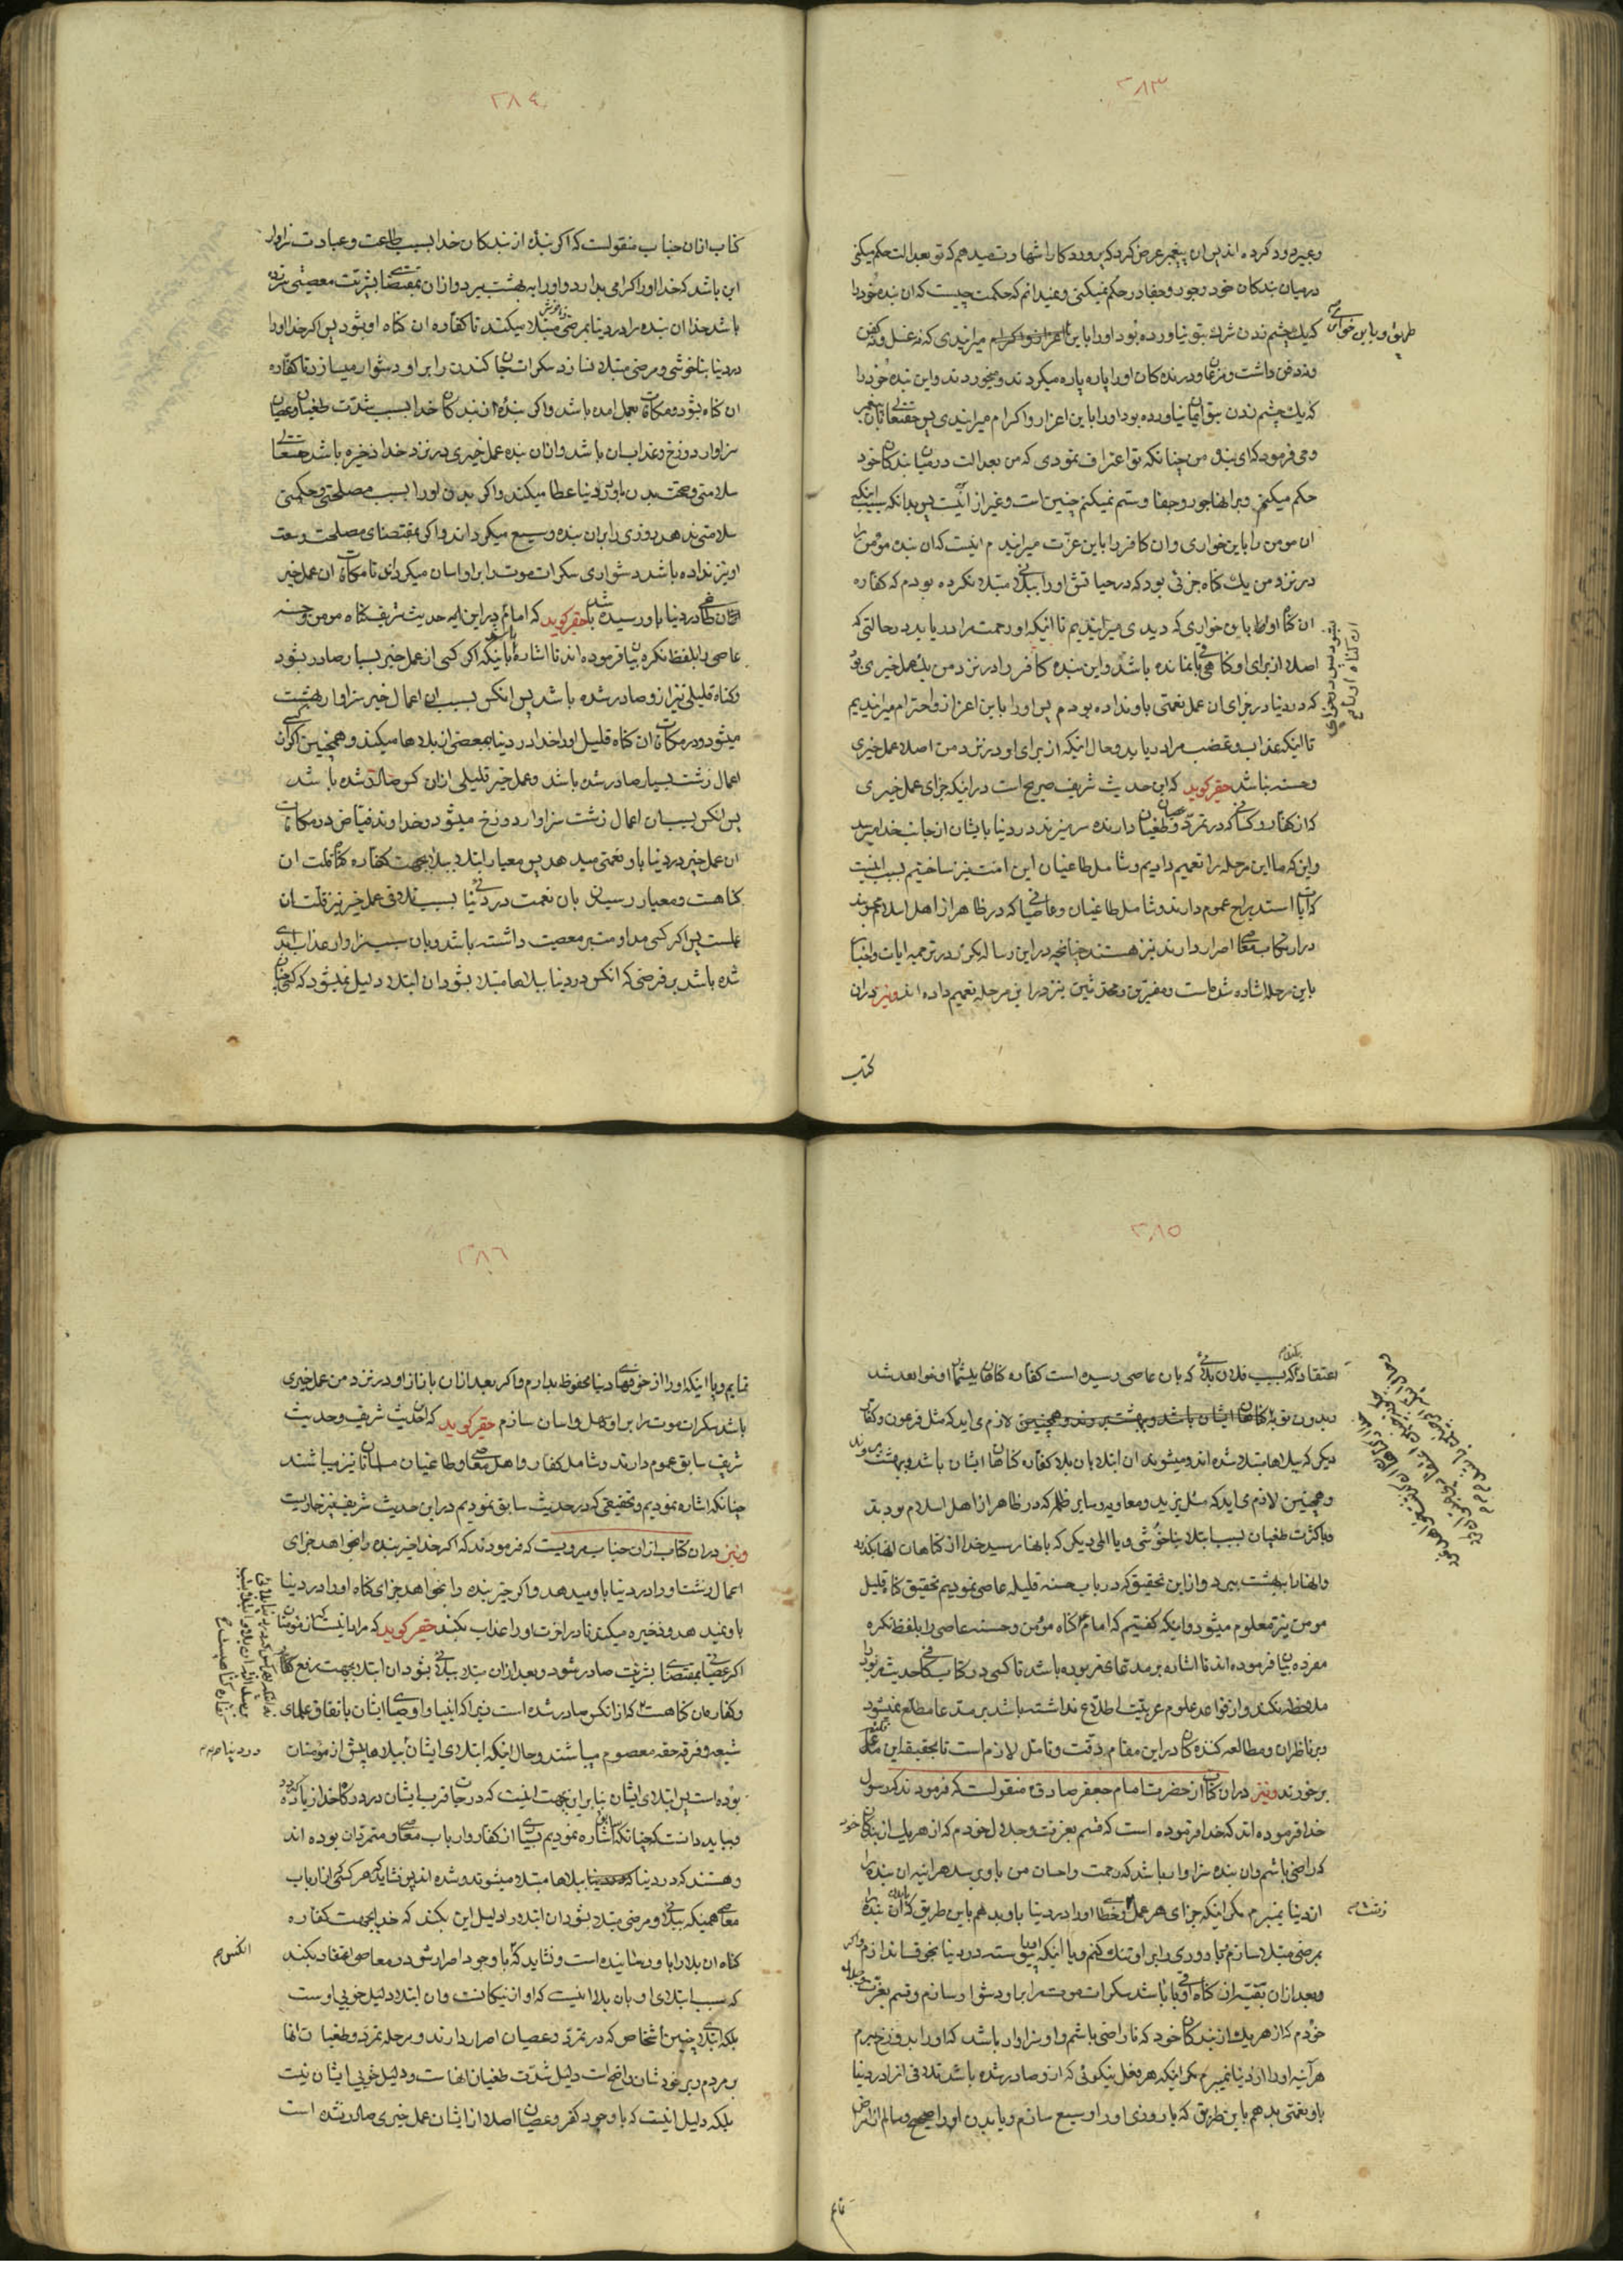 ۲۸۳
وغیره ورد کرده اند پس ان پیغمبر عرض کرد که پروردکارا شهادت میدهم که تو بعدالت حکم میکنی
در میان بندکان خود وجور وجفا در حکم نمیکنی ونمیدانم که حکمت چیست که ان بنده خود را
که یک چشم زدن شرک بتو نیاورده بود اورا باین میرانیدی که نه غسل ونه کفن
ونه دفن داشت ومرغان ودرنده کان اورا پاره پاره میکردند ومیخوردند واین بنده خود را
که یک چشم زدن بتو ایمان نیاورده بود اورا باین اعزاز واکرام میرانیدی پس حقتعالی بان پیغمبر
وحی فرمود که ای بنده من چنانکه تو اعتراف نمودی که من بعدالت در میان بندکان خود
حکم میکنم وبر انها جور وجفا وستم نمیکنم چنین است وغیر از این نیست پس بدانکه سبب اینکه
ان مومن را باین خواری وان کافر را باین عزت میرانیدم اینست که ان بنده مؤمن را
در نزد من یک کناه جزئی بود که در حیاتش اورا ببلائی مبتلا نکرده بودم که کفاره
ان کناه او باین خواری که دیدی میرانیدیم تا اینکه او رحمت مرا دریابد در حالتی که
اصلا از برای او کناهی باقی نمانده باشد واین بنده کافر را در نزد من یک عمل خیری بود
که در دنیا در جزای ان عمل نعمتی باو نداده بودم پس اورا باین اعزاز واحترام میرانیدیم
تا اینکه عذاب وغضب مرا دریابد وحال اینکه از برای او در نزد من اصلا عمل خیری
وحسنه نباشد حقیر کوید که این حدیث شریف صریح است در اینکه جزای عمل خیری
که از کفار وکسانی که در تمرد وطغیان دارند سر میزند در دنیا بایشان از جانب خدا میرسد
واین که ما این مرحله را تعمیم دادیم وشامل طاغیان این امت نیز ساختیم بسبب اینست
که ایات استدراج عموم دارند وشامل طاغیان وعاصیانی که در ظاهر از اهل اسلام محسوبند
در ارتکاب معاصی اصرار دارند نیز هستند چنانچه در این رساله مکرر در ترجمه ایات واخبار
باین مرحله اشاره شده است ومفسرین ومحدثین نیز در این مرحله تعمیم داده اند ونیز در ان
کتاب
۲۸٤
کتاب از ان جناب منقولست که اکر بنده از بندکان خدا بسبب طاعت وعبادت سزاوار
این باشد که خدا اورا کرامی بدارد واورا به بهشت ببرد واز ان بمقتضای بشریت معصیتی سر زده
باشد خدا ان بنده را در دنیا بمرضی مبتلا میکند تا کفاره ان کناه او بشود پس اکر خدا اورا
در دنیا بناخوشی ومرضی مبتلا نسازد سکرات جان کندن را بر او دشوار میسازد تا کفاره
ان کناه بشود ومکافات بعمل امده باشد واکر بنده از بندکان خدا بسبب شدت طغیان وعصیان
سزاوار دوزخ وعذاب ان باشد واز ان بنده عمل خیری در نزد خدا ذخیره باشد حقتعالی
سلامتی وصحت بدن باو در دنیا عطا میکند واکر بدن اورا بسبب مصلحتی وحکمتی
سلامتی ندهد روزی را بر ان بنده وسیع میکرداند واکر بمقتضای مصلحت وسعت
او نیز نداده باشد دشواری سکرات موت را بر او اسان میکرداند تا مکافات ان عمل خیر
در دنیا باو رسیده باشد حقیر کوید که امام در این حدیث شریف کناه مومن وحسنه
عاصی را بلفظ نکره بیان فرموده اند تا اشاره باشد باینکه اکر کسی از عمل خیر بسیار صادر بشود
وکناه قلیلی نیز از او صادر شده باشد پس انکس بسبب ان اعمال خیر سزاوار بهشت
میشود ودر مکافات ان کناه قلیل اورا خدا در دنیا ببعضی از بلاها میکند وهمچنین اکر از کسی
اعمال زشت بسیار صادر شده باشد وعمل خیر قلیلی از ان کس صادر شده باشد
پس انکس بسبب ان اعمال زشت سزاوار دوزخ میشود وخداوند فیاض در مکافات
ان عمل خیر در دنیا باو نعمتی میدهد پس معیار ابتلا ببلا بجهت کفاره کناه قلت ان
کناهست ومعیار رسیدن بان نعمت در دنیا بسبب تلافی عمل خیر نیز قلت ان
عملست پس اکر کسی مداومت بر معصیت داشته باشد وبان سبب سزاوار عذاب ابدی
شده باشد بر فرضی که انکس در دنیا ببلاها مبتلا بشود ان ابتلا دلیل نمیشود که کسی چنان
۲۸٥
اعتقاد کند که بسبب فلان بلائی که بان عاصی رسیده است کفاره کناهان بیشمار او خواهد شد
وبدون توبه لازم می اید که مثل فرعون وکفار
دیکر که ببلاها مبتلا شده اند ومیشوند ان ابتلا بان بلا کفاره کناهان ایشان باشد وبهشت بروند
وهمچنین لازم می اید که مثل یزید ومعاویه وسایر ظلمه که در ظاهر از اهل اسلام بودند
وبا کثرت طغیان بسبب ابتلا بناخوشی ویا المی دیکر که بانها رسید خدا از کناهان انها بکذرد
وانها را ببهشت ببرد واز این تحقیق که در باب حسنه قلیله عاصی نمودیم تحقیق کناه قلیل
مومن نیز معلوم میشود واینکه کفتیم که امام کناه مؤمن وحسنه عاصی را بلفظ نکره
مفرده بیان فرموده اند تا اشاره بر مدعای مزبوره باشد تا کسی در کتاب کافی حدیث مزبور را
ملاحظه نکند واز قواعد علوم عربیت اطلاع نداشته باشد بر مدعا مطلع نمیشود
وبر ناظران ومطالعه کننده کان در این مقام دقت وتامل لازم است تا بحقیقت این مدعا
بر خورند ونیز در ان کتاب از حضرت امام جعفر صادق منقولست که فرمودند که رسول
خدا فرموده اند که خدا فرموده است که قسم بعزت وجلال خودم که از هر یک از بندکان خود
که راضی باشم وان بنده سزاوار باشد که رحمت واحسان من باو برسد هر اینه ان بنده را
از دنیا نمیبرم مکر اینکه جزای هر عمل وخطای اورا در دنیا باو بدهم باین طریق که ان بنده را
بمرضی مبتلا سازم یا روزی را بر او تنک کنم ویا اینکه اورا پیوسته در دنیا بخوف اندازم واکر
وبعد از ان بقیه از کناه او باقی باشد سکرات موت را بر او دشوار سازم وقسم بعزت وجلال
خودم که از هر یک از بندکان خود که ناراضی باشم واو سزاوار باشد که اورا بدوزخ ببرم
هر اینه اورا از دنیا نمیبرم مکر اینکه هر فعل نیکوئی که از او صادر شده باشد تلافی انرا در دنیا
باو نعمتی بدهم باین طریق که یا روزی اورا وسیع سازم ویا بدن اورا صحیح وسالم از امراض
۲۸٦
نمایم ویا اینکه اورا از خوفهای دنیا محفوظ بدارم واکر بعد از ان باز از او در نزد من عمل خیری
باشد سکرات موت را بر او سهل واسان سازم حقیر کوید که این حدیث شریف وحدیث
شریف سابق عموم دارند وشامل کفار واهل معاصی وطاغیان مسلمانان نیز میباشند
چنانکه اشاره نمودیم وتحقیقی که در حدیث سابق نمودیم در این حدیث شریف نیز جاریست
ونیز در ان کتاب از ان جناب مرویست که فرمودند که اکر خدا خیر بنده را بخواهد جزای
اعمال زشت اورا در دنیا باو میدهد واکر خیر بنده را نخواهد جزای کناه اورا در دنیا
باو نمیدهد وذخیره میکند تا در اخرت اورا عذاب بکند حقیر کوید که مراد اینست که از مومنان
اکر عصیانی بمقتضای بشریت صادر شود وبعد از ان مبتلا ببلائی بشود ان ابتلا بجهت رفع کناه
وکفاره ان کناهست که از انکس صادر شده است زیرا که انبیا واوصیای ایشان باتفاق علمای
شیعه وفرقه حقه معصوم میباشند وحال اینکه ابتلای ایشان ببلاها بیش از مومنان
بوده است پس ابتلای ایشان بنا بر این بجهت اینست که درجات قرب ایشان در درکاه خدا زیاده
وبباید دانست که چنانکه اشاره نمودیم بسیاری از کفار وارباب معاصی ومتمردان بوده اند
وهستند که در دنیا ببلاها مبتلا میشوند وشده اند پس نشاید که هر کسی از ارباب
معاصی همینکه ببلائی ومرضی مبتلا بشود ان ابتلا را دلیل این بکند که خدا بجهت کفاره
کناه ان بلا را باو رسانیده است ونشاید که با وجود اصرارش در معاصی اعتقاد بکند
که سبب ابتلای او بان بلا اینست که او از نیکانست وان ابتلا دلیل خوبی اوست
بلکه ابتلای چنین اشخاص که در تمرد وعصیان اصرار دارند ومرحله تمرد وطغیان انها
بر مردم وبر خودشان واضح است دلیل شدت طغیان انهاست ودلیل خوبی ایشان نیست
بلکه دلیل اینست که با وجود کفر وعصیان اصلا از ایشان عمل خیری صادر نشده است